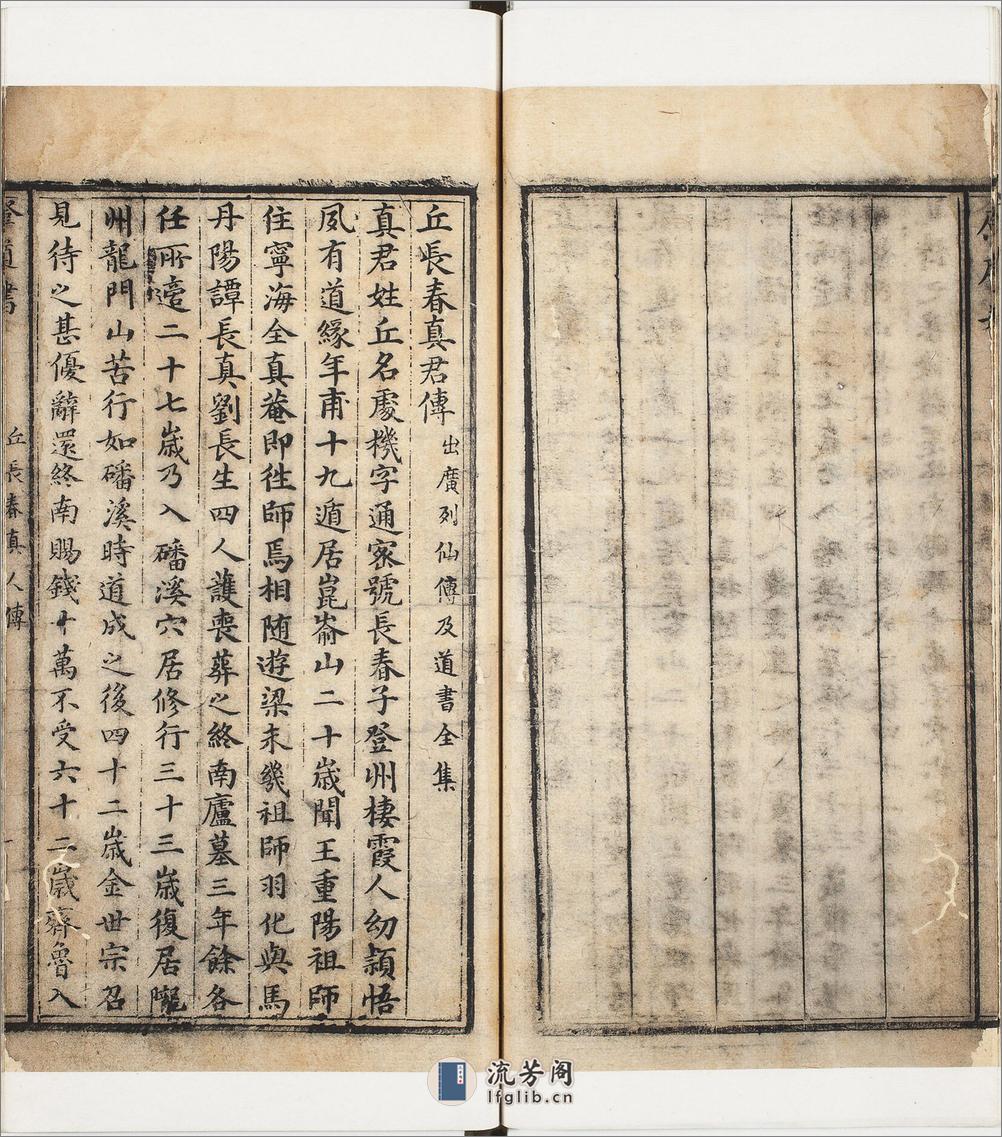 丘長春真君傳 出廣列仙傳及道書全集
真君姓丘名處機字通密號長春子登州棲霞人幼頴悟
夙有道緣年甫十九遁居崑崙山二十歲聞王重陽祖師
住寧海全真菴即往師焉相随遊梁未幾祖師羽化與馬
丹陽譚長真劉長生四人護喪葬之終南廬墓三年餘各
任所適二十七歲乃入磻溪穴居修行三十三歲復居隴
州龍門山苦行如磻溪時道成之後四十二歲金世宗召
見待之甚優辭還終南賜錢十萬不受六十二歲齊魯入
丘長春真人傳 一
流芳阁
lfglib.cn